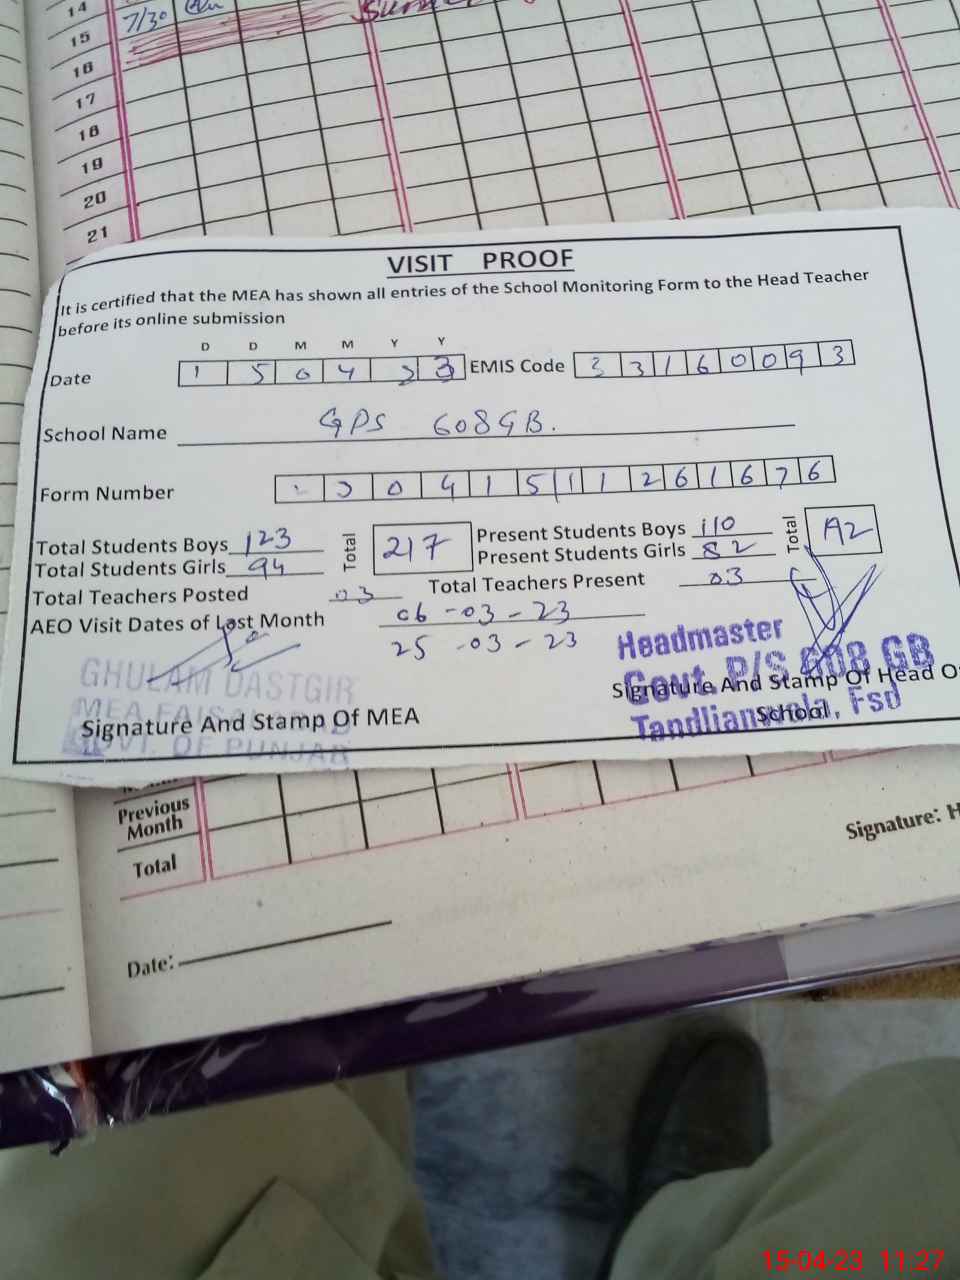 14
15 7/30
16
17
18
19
20
21
VISIT PROOF
It is certified that the MEA has shown all entries of the School Monitoring Form to the Head Teacher
before its online submission
D D M M Y Y
Date 1 5 0 4 2 3 EMIS Code 3 3 1 6 0 0 9 3
School Name GPS 608 GB.
Form Number 3 0 4 1 5 1 1 2 6 1 6 7 6
Total Students Boys 123 Total 217 Present Students Boys 110 Total
Total Students Girls 94 Present Students Girls 82
Total Teachers Posted 03 Total Teachers Present 03
AEO Visit Dates of Last Month 06-03-23
25-03-23
GHULAM DASTGIR
MEA FAISALABAD
GOVT. OF PUNJAB
Signature And Stamp Of MEA
Headmaster
Govt. P/S 608 GB
Tandlianwala, Fsd
Signature And Stamp Of Head Of
School
Previous
Month
Total
Signature: H
Date:
15-04-23 11:27